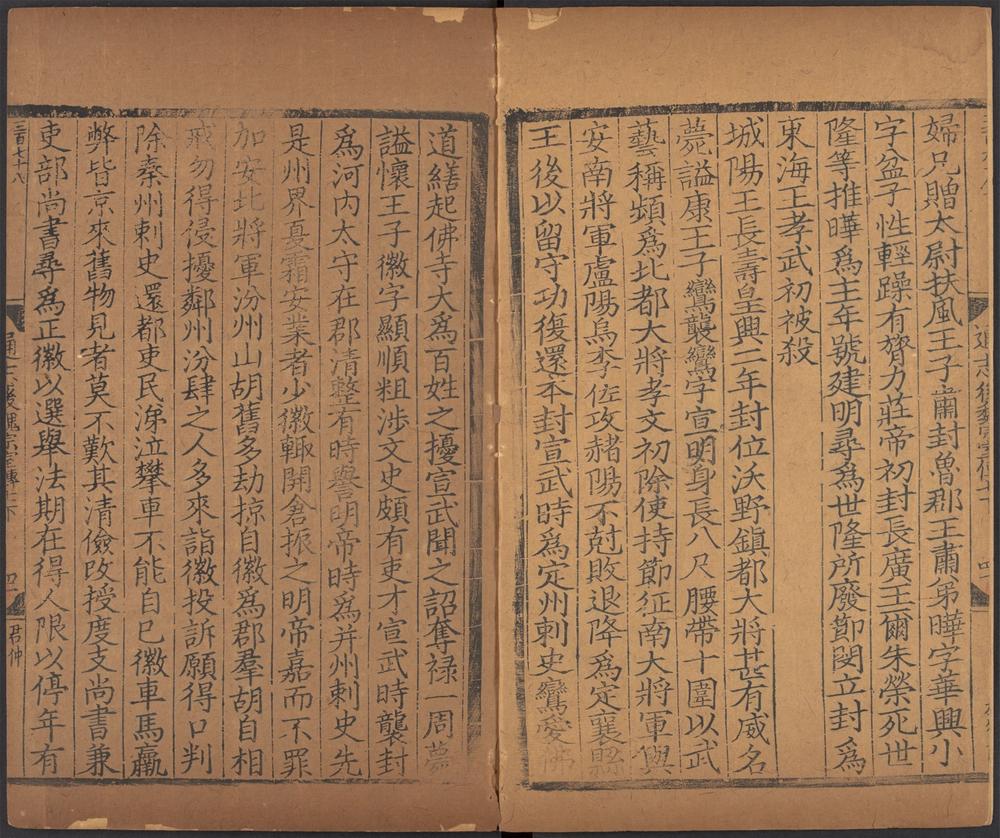 婦兄贈太尉扶風王子肅封魯郡王肅弟曄字華興小
字盆子性輕躁有膂力莊帝初封長廣王爾朱榮死世
隆等推曄爲主年號建明尋爲世隆所廢節閔立封爲
東海王孝武初被殺
城陽王長壽皇興二年封位沃野鎮都大將甚有威名
薨謚康王子鸞襲鸞字宣明身長八尺腰帶十圍以武
藝稱頻爲北都大將孝文初除使持節征南大將軍與
安南將軍盧陽烏李佐攻赭陽不尅敗退降爲定襄縣
王後以留守功復還本封宣武時爲定州刺史鸞愛佛
道繕起佛寺大爲百姓之擾宣武聞之詔奪禄一周薨
謚懷王子徽字顯順粗涉文史頗有吏才宣武時襲封
爲河内太守在郡清整有時譽明帝時爲并州刺史先
是州界夏霜安業者少徽輙開倉振之明帝嘉而不罪
加安北將軍汾州山胡舊多劫掠自徽爲郡羣胡自相
戒勿得侵擾鄰州汾肆之人多來詣徽投訴願得口判
除秦州刺史還都吏民涕泣攀車不能自已徽車馬羸
弊皆京來舊物見者莫不歎其清儉改授度支尚書兼
吏部尚書尋爲正徽以選舉法期在得人限以停年有
君仲